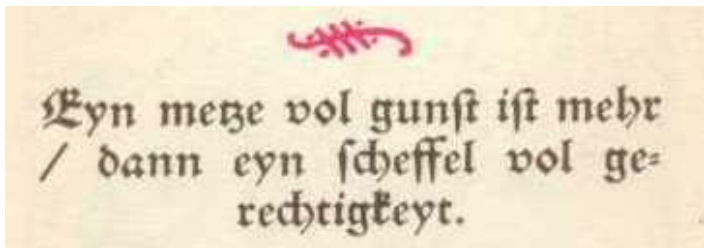 Eyn metze vol gunſt iſt mehr
/ dann eyn ſcheffel vol ge⸗
rechtigkeyt.